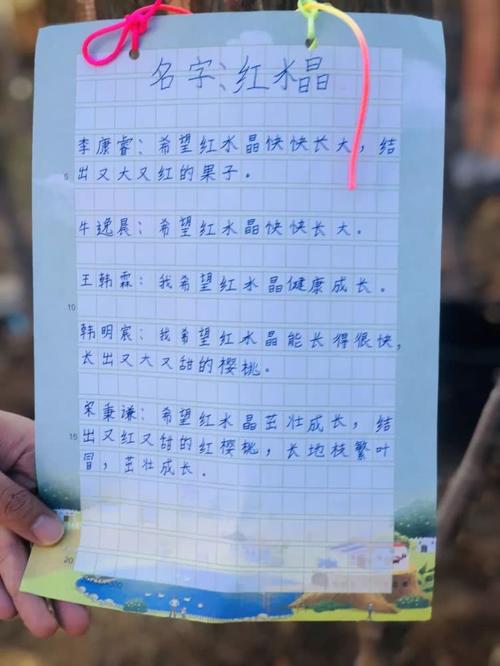 名字:红水晶
李康睿:希望红水晶快快长大,结
5
出又大又红的果子.
牛逸晨:希望红水晶快快长大.
王韩霖:我希望红水晶健康成长.
10
韩明宸:我希望红水晶能长得很快,
长出又大又甜的樱桃。
宋秉谦:希望红水晶茁壮成长,结
15
出又红又甜的红樱桃,长地枝繁叶
冒,茁壮成长.
20